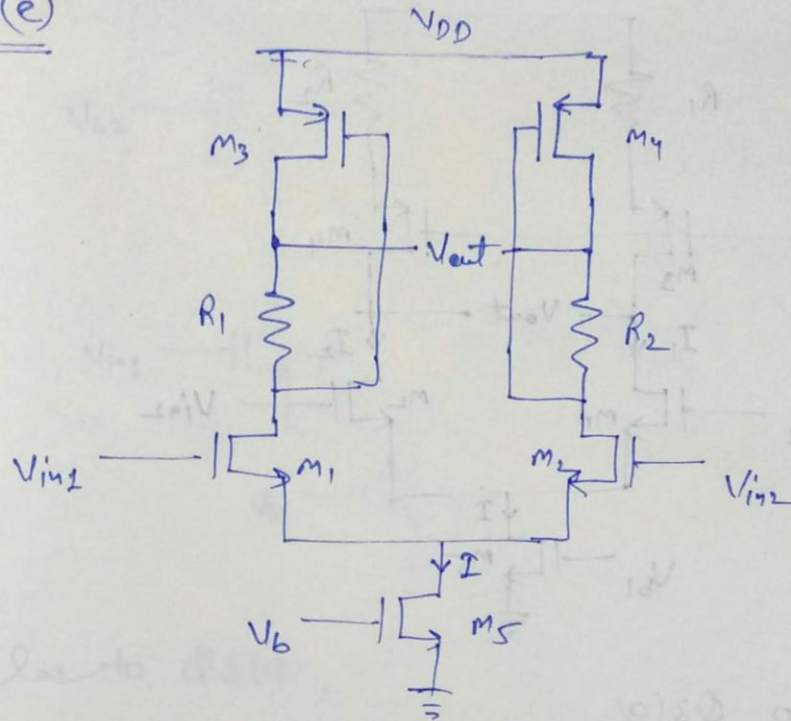 (e)
VDD
M3
M4
Vout
R1
R2
Vin1
M1
M2
Vin2
I
Vb
M5